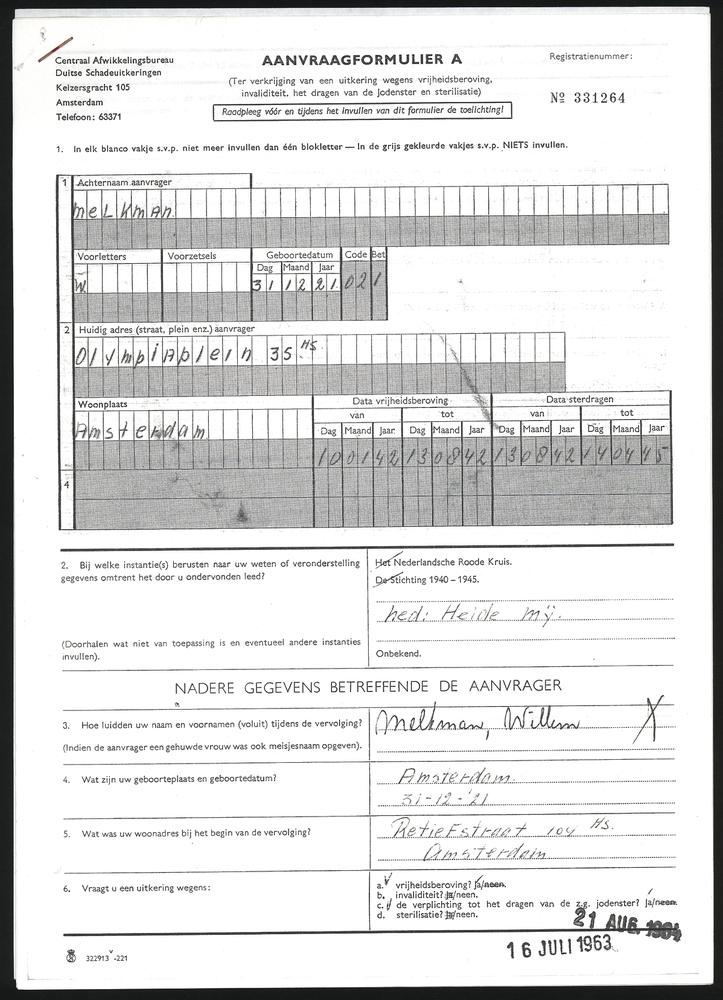 Centraal Afwikkelingsbureau
Duitse Schadeuitkeringen
Keizersgracht 105
Amsterdam
Telefoon: 63371
AANVRAAGFORMULIER A
(Ter verkrijging van een uitkering wegens vrijheidsberoving,
invaliditeit, het dragen van de Jodenster en sterilisatie)
Raadpleeg vóór en tijdens het invullen van dit formulier de toelichting!
Registratienummer:
Nº 331264
1. In elk blanco vakje s.v.p. niet meer invullen dan één blokletter — In de grijs gekleurde vakjes s.v.p. NIETS invullen.
1 Achternaam aanvrager
meLKmAn
Voorletters Voorzetsels Geboortedatum Code Bet
Dag Maand Jaar
W. 31 12 21 02 1
2 Huidig adres (straat, plein enz.) aanvrager
Olympiaplein 35 HS
Woonplaats Data vrijheidsberoving Data sterdragen
van tot van tot
Dag Maand Jaar Dag Maand Jaar Dag Maand Jaar Dag Maand Jaar
Amsterdam
10 01 42 13 08 42 13 08 42 14 04 45
4
2. Bij welke instantie(s) berusten naar uw weten of veronderstelling
gegevens omtrent het door u ondervonden leed?
(Doorhalen wat niet van toepassing is en eventueel andere instanties
invullen).
Het Nederlandsche Roode Kruis.
De Stichting 1940 – 1945.
ned: Heide mÿ.
Onbekend.
NADERE GEGEVENS BETREFFENDE DE AANVRAGER
3. Hoe luidden uw naam en voornamen (voluit) tijdens de vervolging?
(Indien de aanvrager een gehuwde vrouw was ook meisjesnaam opgeven).
Melkman, Willem X
4. Wat zijn uw geboorteplaats en geboortedatum?
Amsterdam
31-12-'21
5. Wat was uw woonadres bij het begin van de vervolging?
Retiefstraat 104 Hs.
Amsterdam
6. Vraagt u een uitkering wegens:
a. vrijheidsberoving? ja/neen.
b. invaliditeit? ja/neen.
c. de verplichting tot het dragen van de z.g. jodenster? ja/neen.
d. sterilisatie? ja/neen.
21 AUG. 1964
16 JULI 1963
322913 v -221